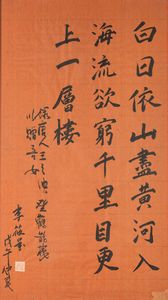 白日依山盡黃河入
海流欲窮千里目更
上一層樓
唐人王之渙登鸛鵲樓
以贈
李
戊午仲